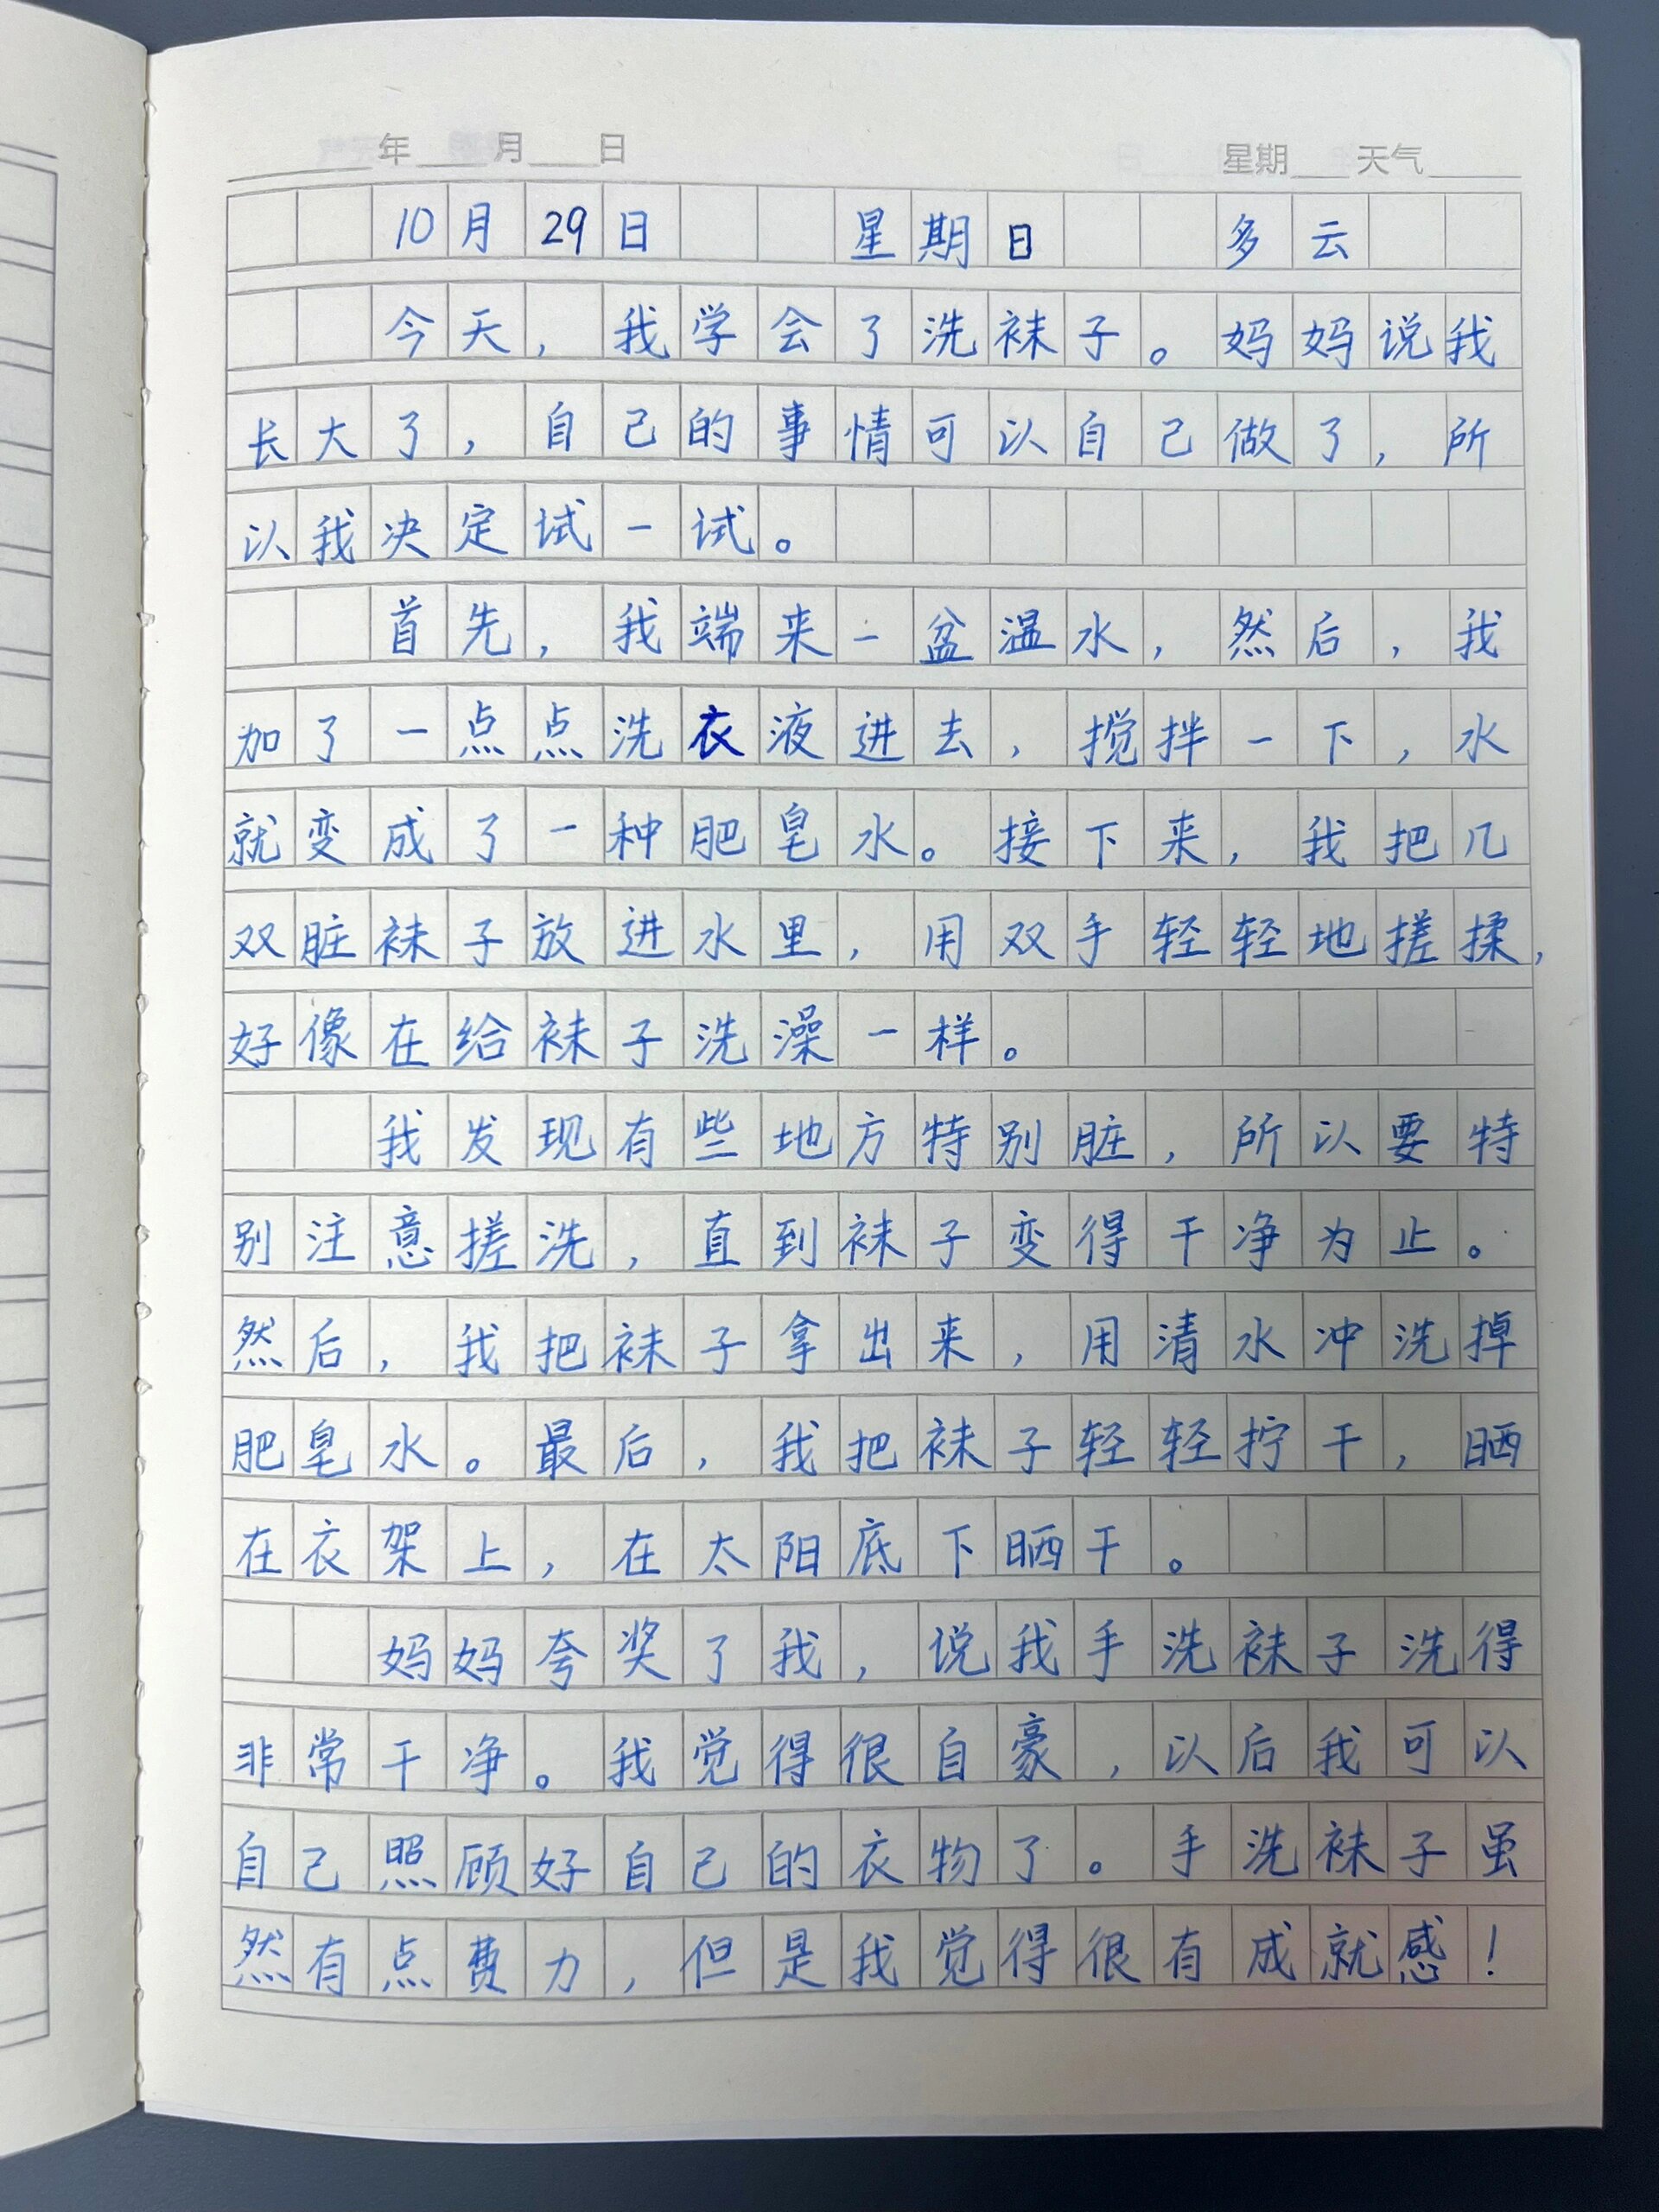 年 月 日 星期 天气
10月29日 星期日 多云
今天，我学会了洗袜子。妈妈说我
长大了，自己的事情可以自己做了，所
以我决定试一试。
首先，我端来一盆温水，然后，我
加了一点点洗衣液进去，搅拌一下，水
就变成了一种肥皂水。接下来，我把几
双脏袜子放进水里，用双手轻轻地搓揉，
好像在给袜子洗澡一样。
我发现有些地方特别脏，所以要特
别注意搓洗，直到袜子变得干净为止。
然后，我把袜子拿出来，用清水冲洗掉
肥皂水。最后，我把袜子轻轻拧干，晒
在衣架上，在太阳底下晒干。
妈妈夸奖了我，说我手洗袜子洗得
非常干净。我觉得很自豪，以后我可以
自己照顾好自己的衣物了。手洗袜子虽
然有点费力，但是我觉得很有成就感！